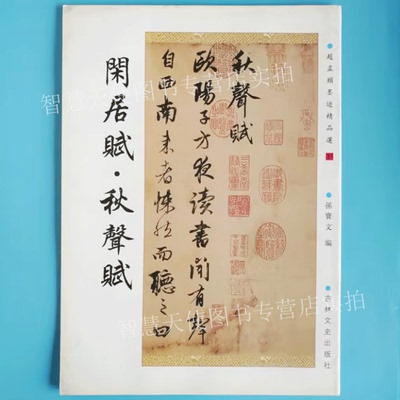 閑居賦·秋聲賦
秋聲賦
歐陽子方夜讀書聞有聲
自西南来者悚然而聽之曰
趙孟頫墨迹精品選
孫寶文 編
吉林文史出版社
智慧天使图书专营店实拍
智慧天使图书专营店实拍